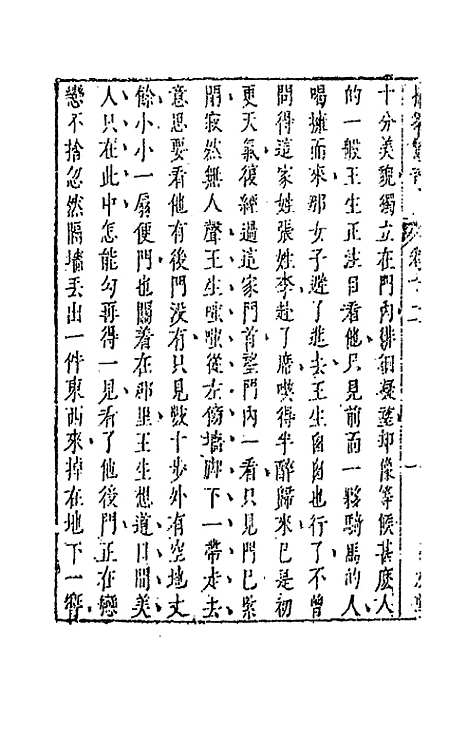 卷十二
十分美貌獨立在門內徘徊凝望却像等候甚麽人
的一般王生正注目看他只見前面一夥騎馬的人
喝擁而來那女子避了進去王生匆匆也行了不曾
問得這家姓張姓李赴了席喫得半醉歸來已是初
更天氣復經過這家門首望門內一看只見門已緊
閉寂然無人聲王生嗤嗤從左傍墻脚下一帶走去
意思要看他有後門没有只見數十步外有空地丈
餘小小一扇便門也關着在那里王生想道日間美
人只在此中怎能勾再得一見看了他後門正在戀
戀不捨忽然隔墻丢出一件東西來掉在地下一響